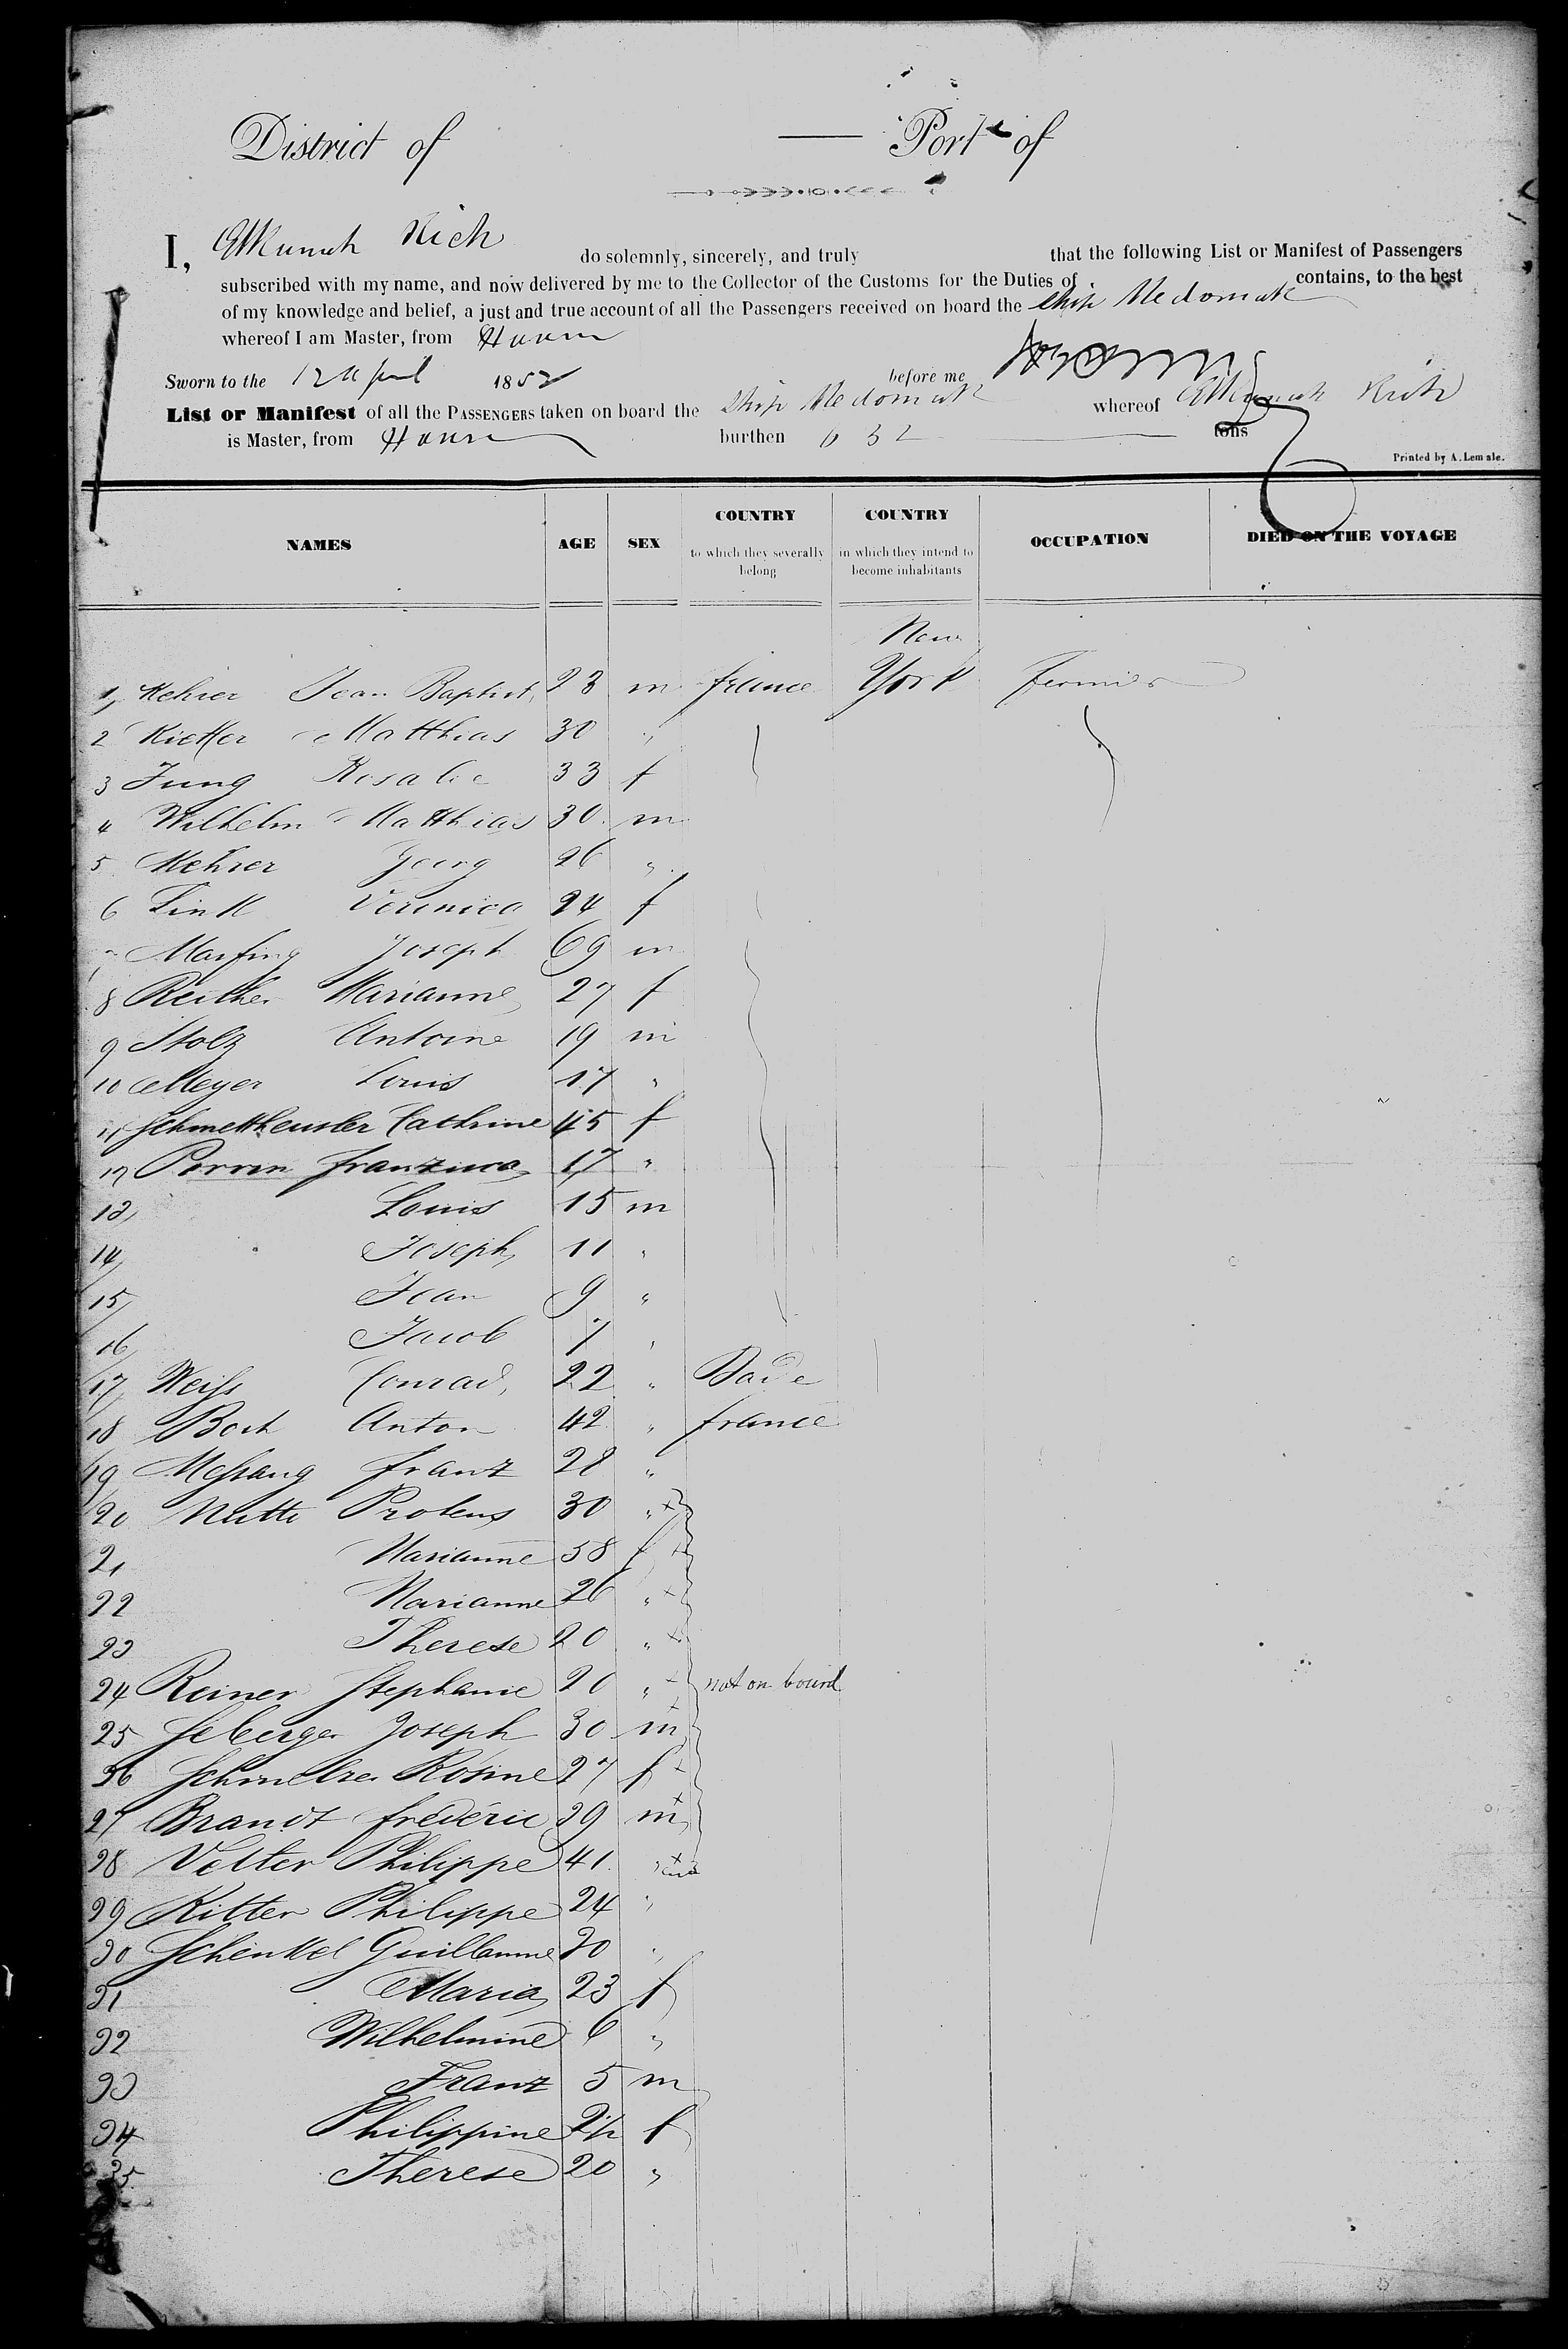 District of — Port of
I, Elkanah Rich do solemnly, sincerely, and truly that the following List or Manifest of Passengers
subscribed with my name, and now delivered by me to the Collector of the Customs for the Duties of contains, to the best
of my knowledge and belief, a just and true account of all the Passengers received on board the Ship Medomak
whereof I am Master, from Havre
Sworn to the 12 April 1852 before me
List or Manifest of all the PASSENGERS taken on board the Ship Medomak whereof Elkanah Rich
is Master, from Havre burthen 632 tons
Printed by A. Lemale.
NAMES AGE SEX COUNTRY to which they severally belong COUNTRY in which they intend to become inhabitants OCCUPATION DIED ON THE VOYAGE
New
1, Mehrer Jean Baptist, 23 m france York fermier
2 Kieffer Matthias 30 "
3 Jung Rosalie 33 f
4 Wilhelm Matthias 30. m
5 Mehrer Georg 26 "
6 Link Veronica 24 f
7 Marfing Joseph 69 m
8 Reither Marianne 27 f
9 Stolz Antoine 19 m
10 Meyer Louis 17 "
11 Cathrine 45 f
12 Perrin franzisca 17 "
13, Louis 15 m
14, Joseph, 11 "
15, Jean 9 "
16, Jacob 7 "
17, Weiss Conrad, 22 " Bade
18 Anton 42 " france
19 Messang franz 28 "
20 Proteus 30 " +
21 Marianne 58 f +
22 Marianne 26 " +
23 Therese 20 " +
24 Reiner Stephanie 20 " + not on board
25 Seberger Joseph 30 m +
26 Schmelzer Rosine 27 f +
27 Brandt frédéric 29 m +
28 Vetter Philippe 41. " +
29 Ritter Philippe 24 "
30 Schenkel Guillaume 30 "
31 Maria 23 f
32 Wilhelmine 6 "
33 Franz 5 m
34 Philippine 2½ f
35 Therese 20 "